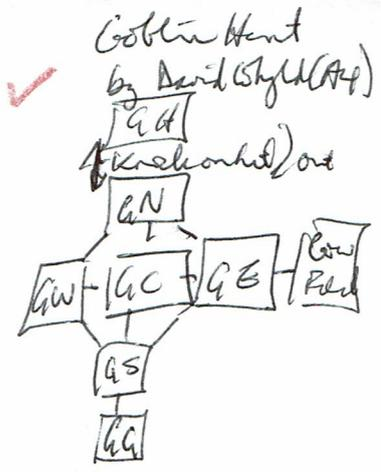 Goblin Hunt
by David Whyld (A4)
GH
(Knock on hut)/out
GN
GW GC GE Cow Field
GS
GG